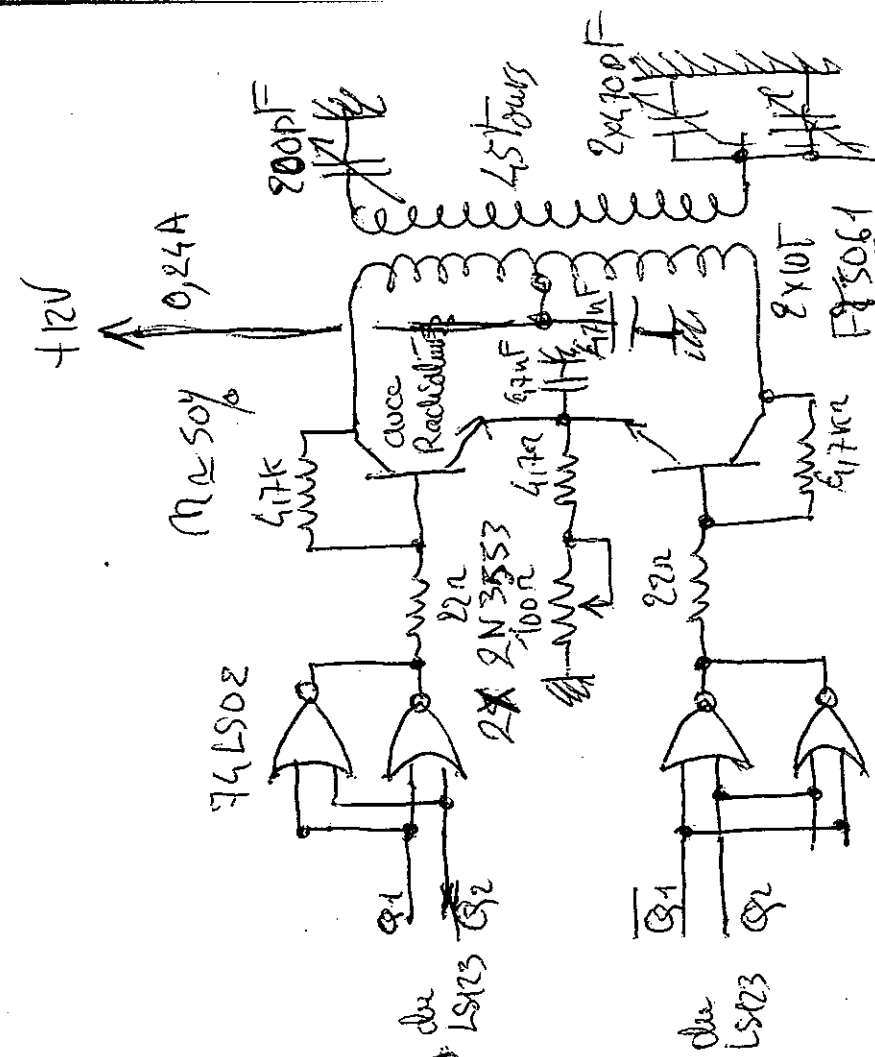 +12V
0,24A
200pF
45 Tours
2x470pF
η ≃ 50%
4,7K
avec
Radiateurs
4,7nF
47nF
4,7Ω
2x10T
4,7KΩ
22Ω
2x 2N3553
100Ω
22Ω
74LS02
Q1
Q̅2̅
du
LS123
Q̅1̅
Q2
du
LS123